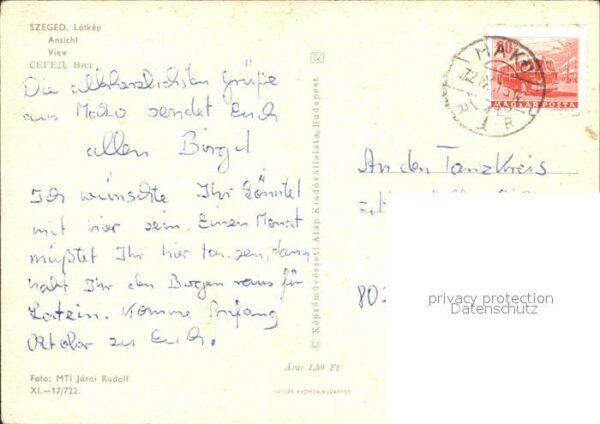 SZEGED. Látkép
Ansicht
View
СЕГЕД. Вид
Die allerherzlichsten Grüße
aus Mako sendet Euch
allen Birgit
Ich wünschte Ihr könntet
mit hier sein. Einen Monat
müßtet Ihr hier tanzen, dann
habt Ihr den Bogen raus für
Latein. Komme Anfang
Oktober zu Euch.
Foto: MTI Járai Rudolf
XI.—17/722.
© Képzőművészeti Alap Kiadóvállalata, Budapest
Ára: 1,50 Ft
MAKÓ
MAGYAR POSTA
An den Tanzkreis
80
privacy protection
Datenschutz